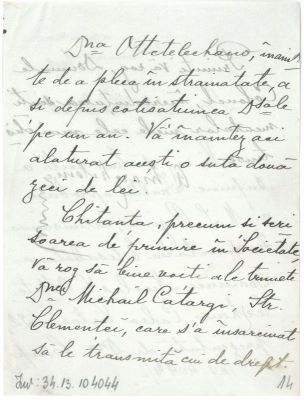 Dna Ottetelechano, înain
te de a pleca în străinătate, a
și depus cotisațiunea Dsale
pe un an. Vă înaintez aci
alăturat acești o sută două
zeci de lei.
Chitanța, precum și scri
soarea de primire în Societate
Vă rog să bine voiți a le trimete
Dnei Michail Catargi, Str.
Clementei, care s'a însărcinat
să le transmită cui de drept.
Inv: 34.13.104044
14